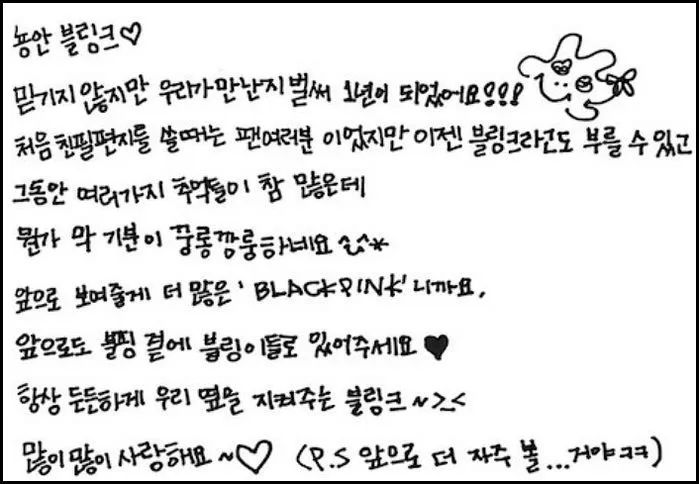 뇽안 블링크♡
믿기지 않지만 우리가 만난지 벌써 1년이 되었어요!!!
처음 친필편지를 쓸때는 팬여러분 이었지만 이젠 블링크라고도 부를 수 있고
그동안 여러가지 추억들이 참 많은데
뭔가 막 기분이 꾸롱깡룽하네요 ^^*
앞으로 보여줄게 더 많은 'BLACKPINK'니까요,
앞으로도 블핑 곁에 블링이들로 있어주세요 ♥
항상 든든하게 우리 옆을 지켜주는 블링크~>_<
많이많이 사랑해요~♡ (P.S 앞으로 더 자주 볼...거야ㅋㅋ)